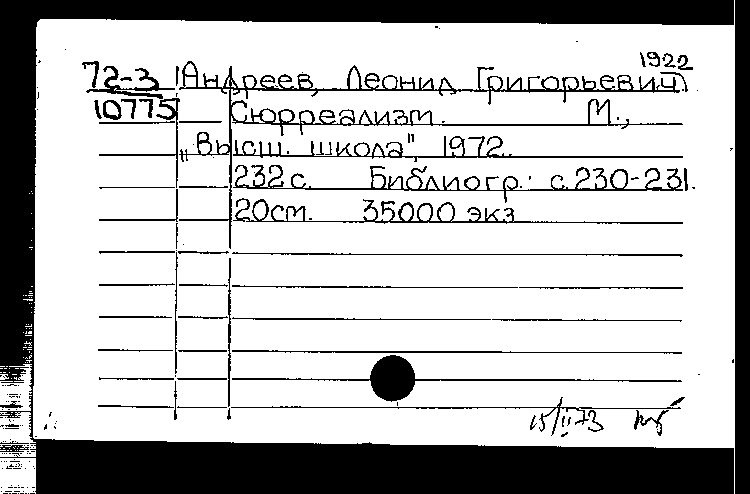 1922
72-3 Андреев, Леонид Григорьевич
10775 Сюрреализм. М.,
„Высш. школа", 1972.
232 с. Библиогр.: с. 230-231.
20см. 35000 экз
15/II-73